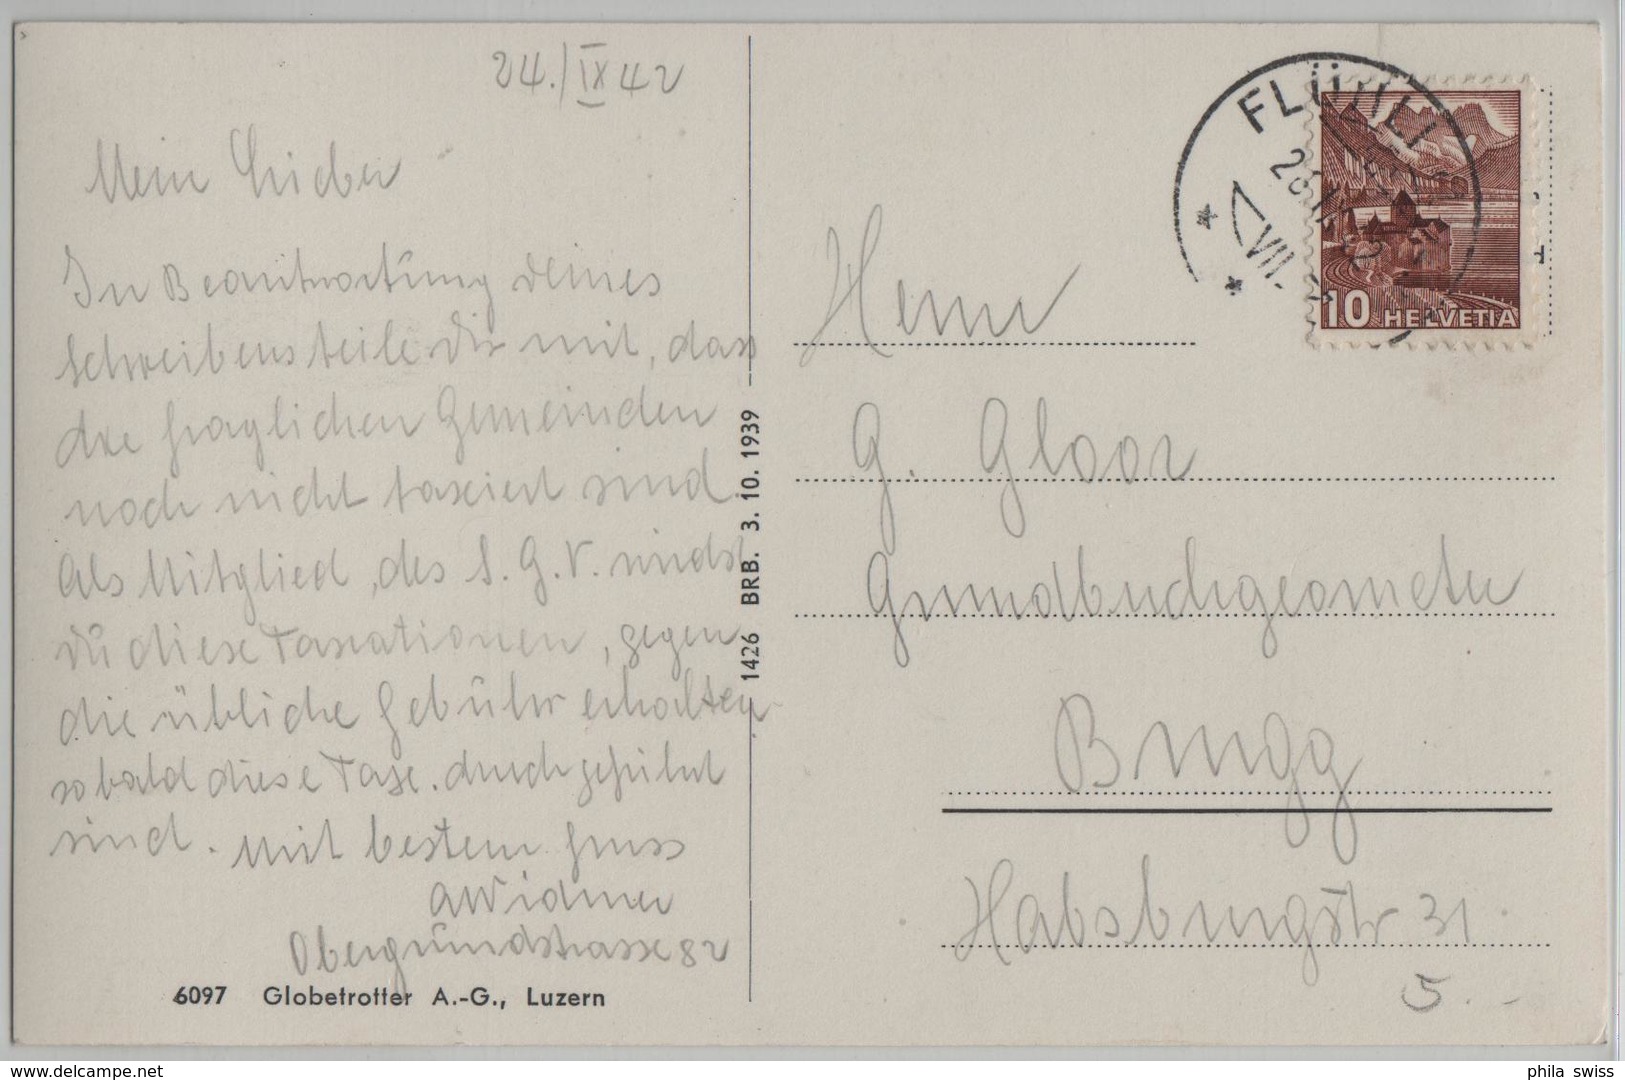 24./IX 42
Mein Lieber
In Beantwortung deines
Schreibens teile Dir mit, dass
die fraglichen Gemeinden
noch nicht taxiert sind.
Als Mitglied, des S. G. V. wirdst
Du diese Taxationen, gegen
die übliche Gebühr erhalten
sobald diese Taxe. durchgeführt
sind. Mit bestem Gruss
A Widmer
Obergrundstrasse 82
6097 Globetrotter A.-G., Luzern
1426 BRB. 3. 10. 1939
FLÜHLI
VII.
10 HELVETIA
Herrn
G. Gloor
Grundbuchgeometer
Brugg
Habsburgstr 31
5.-
delcampe.net
phila_swiss